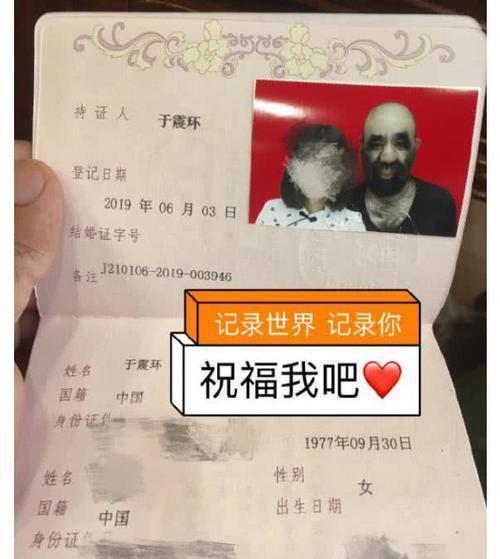 持证人 于震环
登记日期
2019 年 06 月 03 日
结婚证字号
J210106-2019-003946
备注
记录世界 记录你
祝福我吧❤️
姓名 于震环
国籍 中国
身份证件
1977年09月30日
姓名
性别 女
国籍 中国
出生日期
身份证件